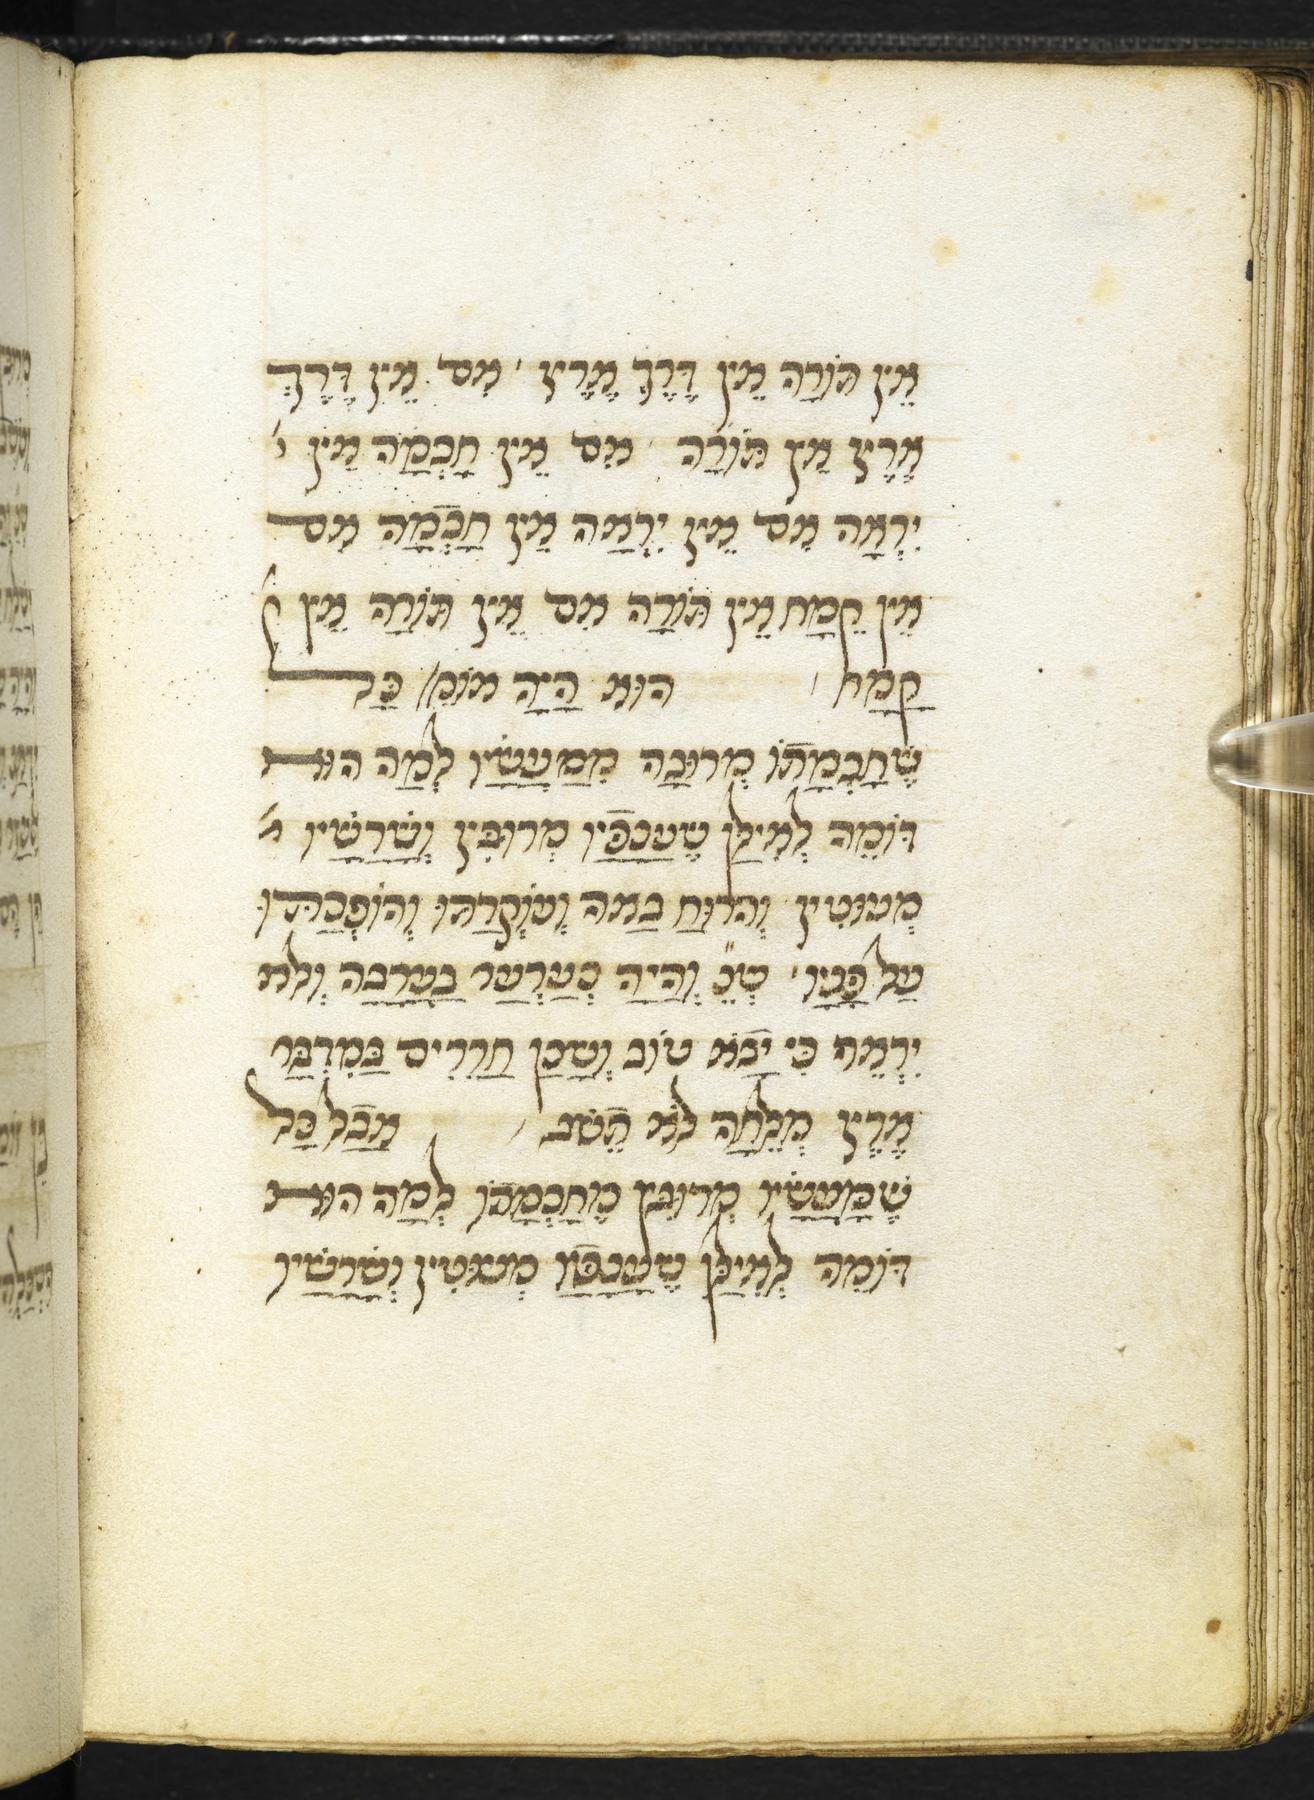 אֵין תּוֹרָה אֵין דֶּרֶךְ אֶרֶץ ׳ אִם אֵין דֶּרֶךְ
אֶרֶץ אֵין תּוֹרָה ׳ אִם אֵין חָכְמָה אֵין י
יִרְאָה אִם אֵין יִרְאָה אֵין חָכְמָה אִם
אֵין קֶמַח אֵין תּוֹרָה אִם אֵין תּוֹרָה אֵין
קֶמַח ׳ הוּא הָיָה אוֹמֵ׳ כָּל
שֶׁחָכְמָתוֹ מְרוּבָּה מִמַּעֲשָׂיו לְמָה הוּא
דּוֹמֶה לְאִילָן שֶׁעֲנָפָיו מְרוּבִּין וְשָׁרָשָׁיו
מְעוּטִין וְהָרוּחַ בָּאָה וְעוֹקַרְתּוֹ וְהוֹפַכְתּוֹ
עַל פָּנָיו ׳ שֶׁנֶּ֞ וְהָיָה כְּעַרְעָר בָּעֲרָבָה וְלֹא
יִרְאֶה כִּי יָבֹא טוֹב וְשָׁכַן חֲרֵרִים בַּמִּדְבָּר
אֶרֶץ מְלֵחָה לֹא תֵשֵׁב ׳ אֲבָל כָּל
שֶׁמַּעֲשָׂיו מְרוּבִּין מֵחָכְמָתוֹ לְמָה הוּא
דּוֹמֶה לְאִילָן שֶׁעֲנָפָיו מְעוּטִין וְשָׁרָשָׁיו